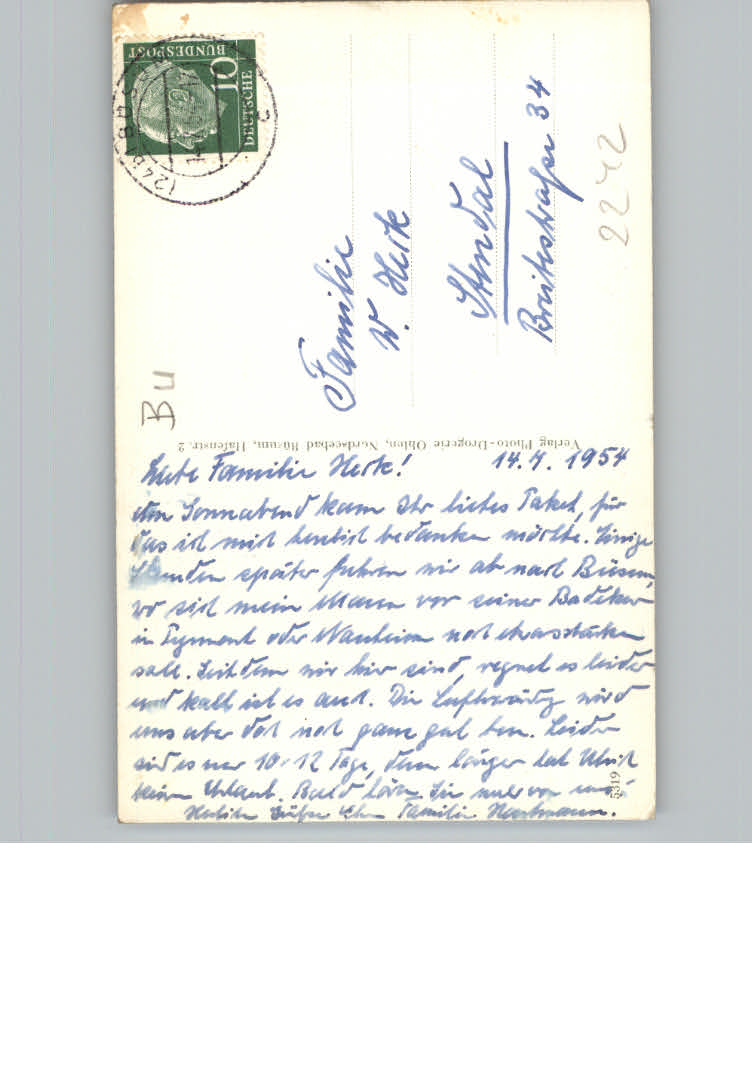 DEUTSCHE
BUNDESPOST
10
(24b) BÜSUM
c
Familie
W. Herk
Stendal
Breitestraße 34
2242
BU
Verlag Photo-Drogerie Ohlen, Nordseebad Büsum, Hafenstr. 2
14.7.1954
Liebe Familie Herk!
Am Sonnabend kam Ihr liebes Paket, für
das ich mich herzlich bedanken möchte. Einige
Stunden später fuhren wir ab nach Büsum,
wo sich mein Mann vor seiner Badekur
in Pyrmont oder Nauheim noch etwas stärken
soll. Seitdem wir hier sind, regnet es leider
und kalt ist es auch. Die wird
uns aber doch noch ganz gut tun. Leider
sind es nur 10-12 Tage, denn länger hat Ulrich
keinen Urlaub. Bald hören Sie mehr von uns.
Herzliche Grüße Ihre Familie Hartmann.
5319